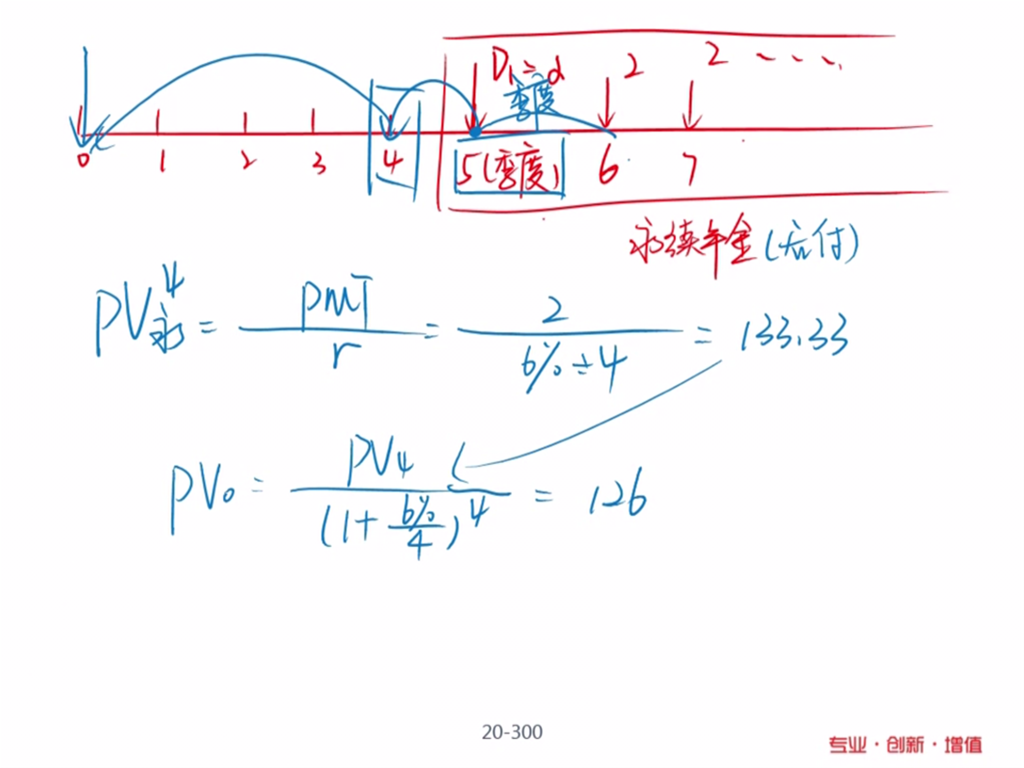 D₁=2 2 2 ....
季度
0 1 2 3 4 5(季度) 6 7
永续年金(后付)
PV永⁴ = PMT/r = 2/(6%÷4) = 133.33
PV₀ = PV₄/(1+6%/4)⁴ = 126
20-300
专业·创新·增值